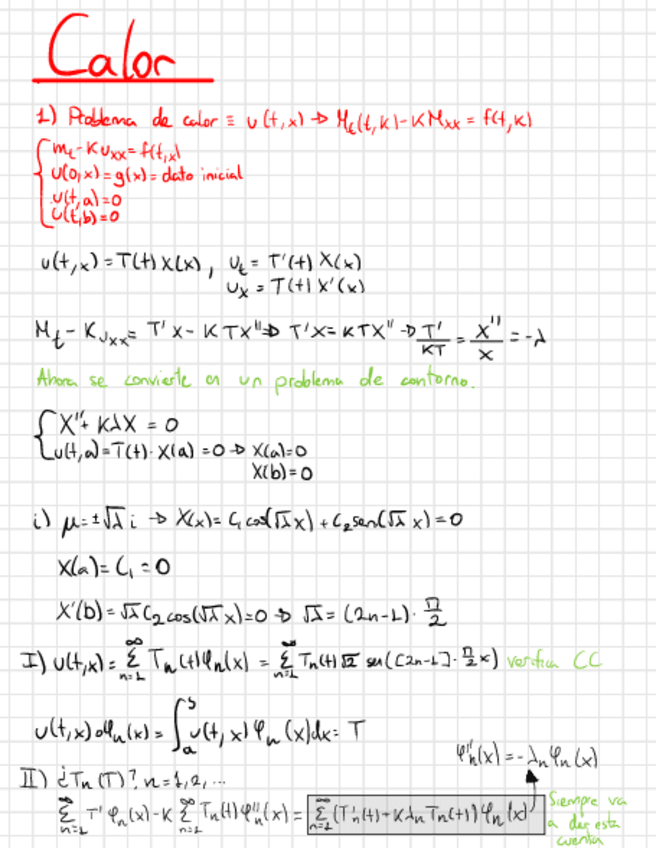 Calor
1) Problema de calor ≡ u(t,x) → M_t(t,k)-KM_xx = f(t,k)
m_t-Ku_xx=f(t,x)
u(0,x)=g(x)=dato inicial
u(t,a)=0
u(t,b)=0
u(t,x)=T(t)X(x), u_t = T'(t) X(x)
u_x = T(t) X'(x)
M_t - Ku_xx = T'X - KTX'' ⇒ T'X = KTX'' → T'/KT = X''/X = -λ
Ahora se convierte en un problema de contorno.
X''+ KλX = 0
u(t,a)=T(t)·X(a)=0 → X(a)=0
X(b)=0
i) μ=±√λ i → X(x)= C₁cos(√λx)+C₂sen(√λ x)=0
X(a)= C₁ = 0
X'(b)=√λC₂cos(√λx)=0 → √λ = (2n-1)·π/2
I) u(t,x)= ∑_{n=1}^∞ T_n(t)φ_n(x) = ∑_{n=1}^∞ T_n(t)√2 sen([2n-1]·π/2 x) verifica CC
φ_n(x)= ∫_a^b u(t,x)φ_n(x)dx = T
φ''_n(x)=-λ_nφ_n(x)
II) ¿T_n(T)? n=1,2,...
∑_{n=1}^∞ T'φ_n(x)-K ∑_{n=1}^∞ T_n(t)φ''_n(x)= ∑_{n=1}^∞ (T'_n(t)+Kλ_nT_n(t))φ_n(x)
Siempre va
a dar esta
cuenta